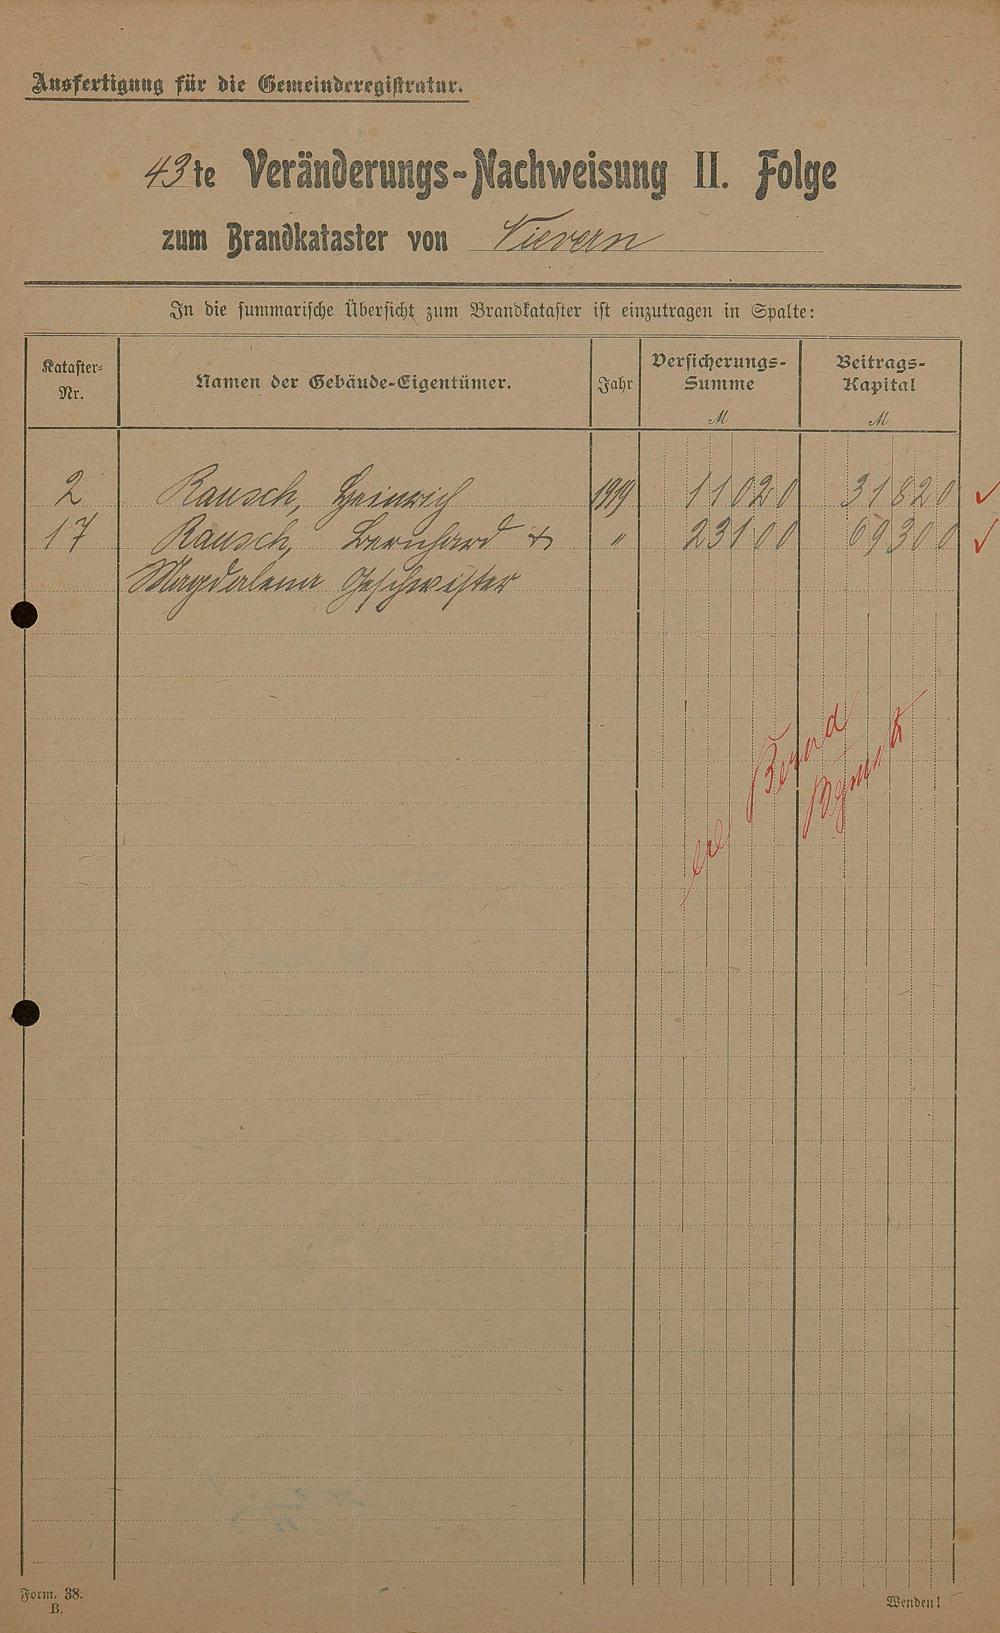 Ausfertigung für die Gemeinderegistratur.
43te Veränderungs-Nachweisung II. Folge
zum Brandkataster von Nievern
In die summarische Übersicht zum Brandkataster ist einzutragen in Spalte:
Kataster-Nr. Namen der Gebäude-Eigentümer. Jahr Versicherungs-Summe M Beitrags-Kapital M
2 Rausch, Heinrich 1919 11020 31820
17 Rausch, Bernhard & " 23100 69300
Magdalena Geschwister
Form. 38.
B.
Wenden!